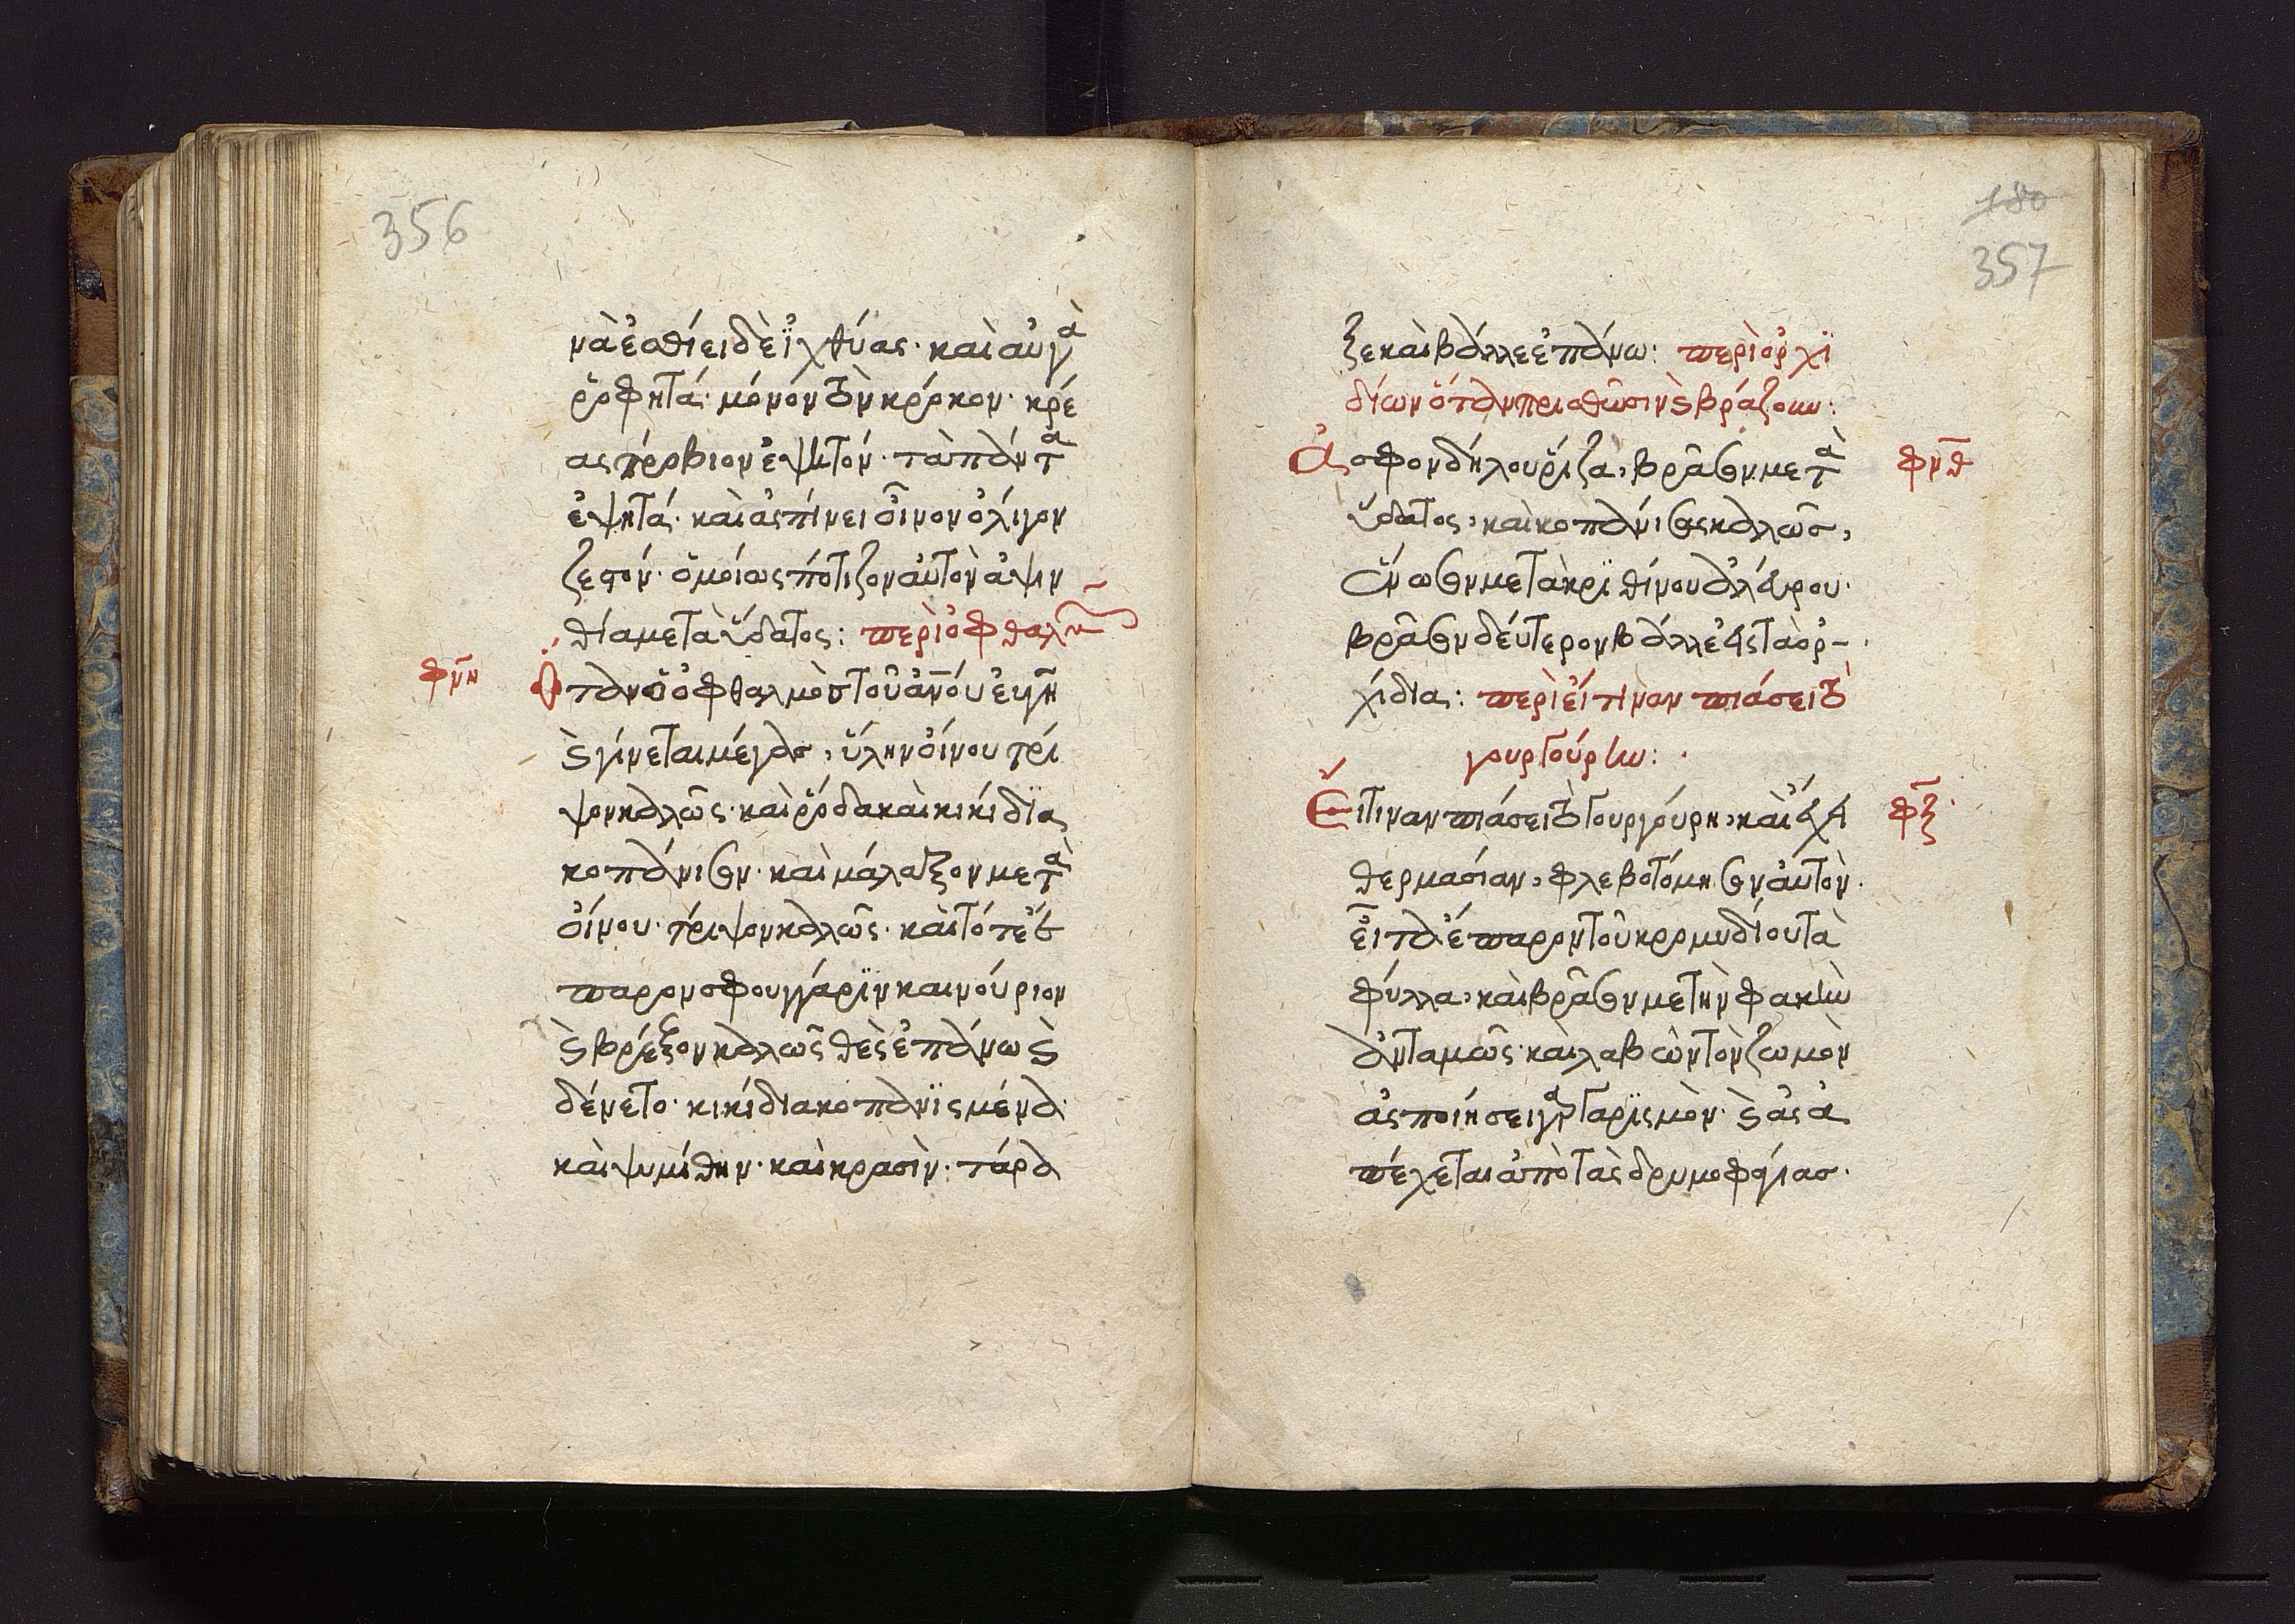 356
νὰ ἐσθίει δὲ ἰχθύας· καὶ αὐγὰ
ῥοφητά· μόνον τὸν κρόκον· κρέ
ας τρόβιον ἑψητόν· τὰ πάντα
ἑψητά· καὶ ἂς πίνει οἶνον ὀλίγον
ζεστόν· ὁμοίως πότιζον αὐτὸν ἀψιν
θία μετὰ ὕδατος: περὶ ὀφθαλμ
φνη
Ὅταν ὁ ὀφθαλμὸς τοῦ ἀνου ἐκβῆ
καὶ γίνεται μέγας, ὕλην οἴνου τρί
ψον καλῶς· καὶ ῥόδα καὶ κικίδια
κοπάνισον· καὶ μάλαξον μετὰ
οἴνου· τρίψον καλῶς· καὶ τότε ἔ
παρον σφουγγάριν καινούριον
καὶ βρέξον καλῶς θὲς ἐπάνω καὶ
δένε το· κικίδια κοπανισμένα
καὶ ψιμίθην· καὶ κρασὶν· τάρα
180
357
ξε καὶ βάλλε ἐπάνω: περὶ ὀρχι
δίων ὅταν πρισθῶσιν καὶ βράζουν:
Ἀσφονδήλου ῥίζα, βράσον μετὰ
φνθ
ὕδατος, καὶ κοπάνισε καλῶς,
ἕνωσον μετὰ κριθίνου ἀλεύρου·
βράσον δεύτερον βάλλε εἰς τὰ ὀρ-
χίδια: περὶ εἴ τιναν πιάσει τὸ
γουργούριν:
Εἴ τιναν πιάσει τὸ γουργούρη, καὶ ἔχει
φξ
θερμασίαν, φλεβοτόμησον αὐτὸν·
εἶτα ἔπαρον τοῦ κρομυδίου τὰ
φύλλα, καὶ βράσον με τὴν φακὴν
ἀντάμως· καὶ λαβὼν τὸν ζωμὸν
ἂς ποιήσει γαργαρισμὸν· καὶ ἂς ἀ
πέχεται ἀπὸ τὰς δριμοφαγίας·